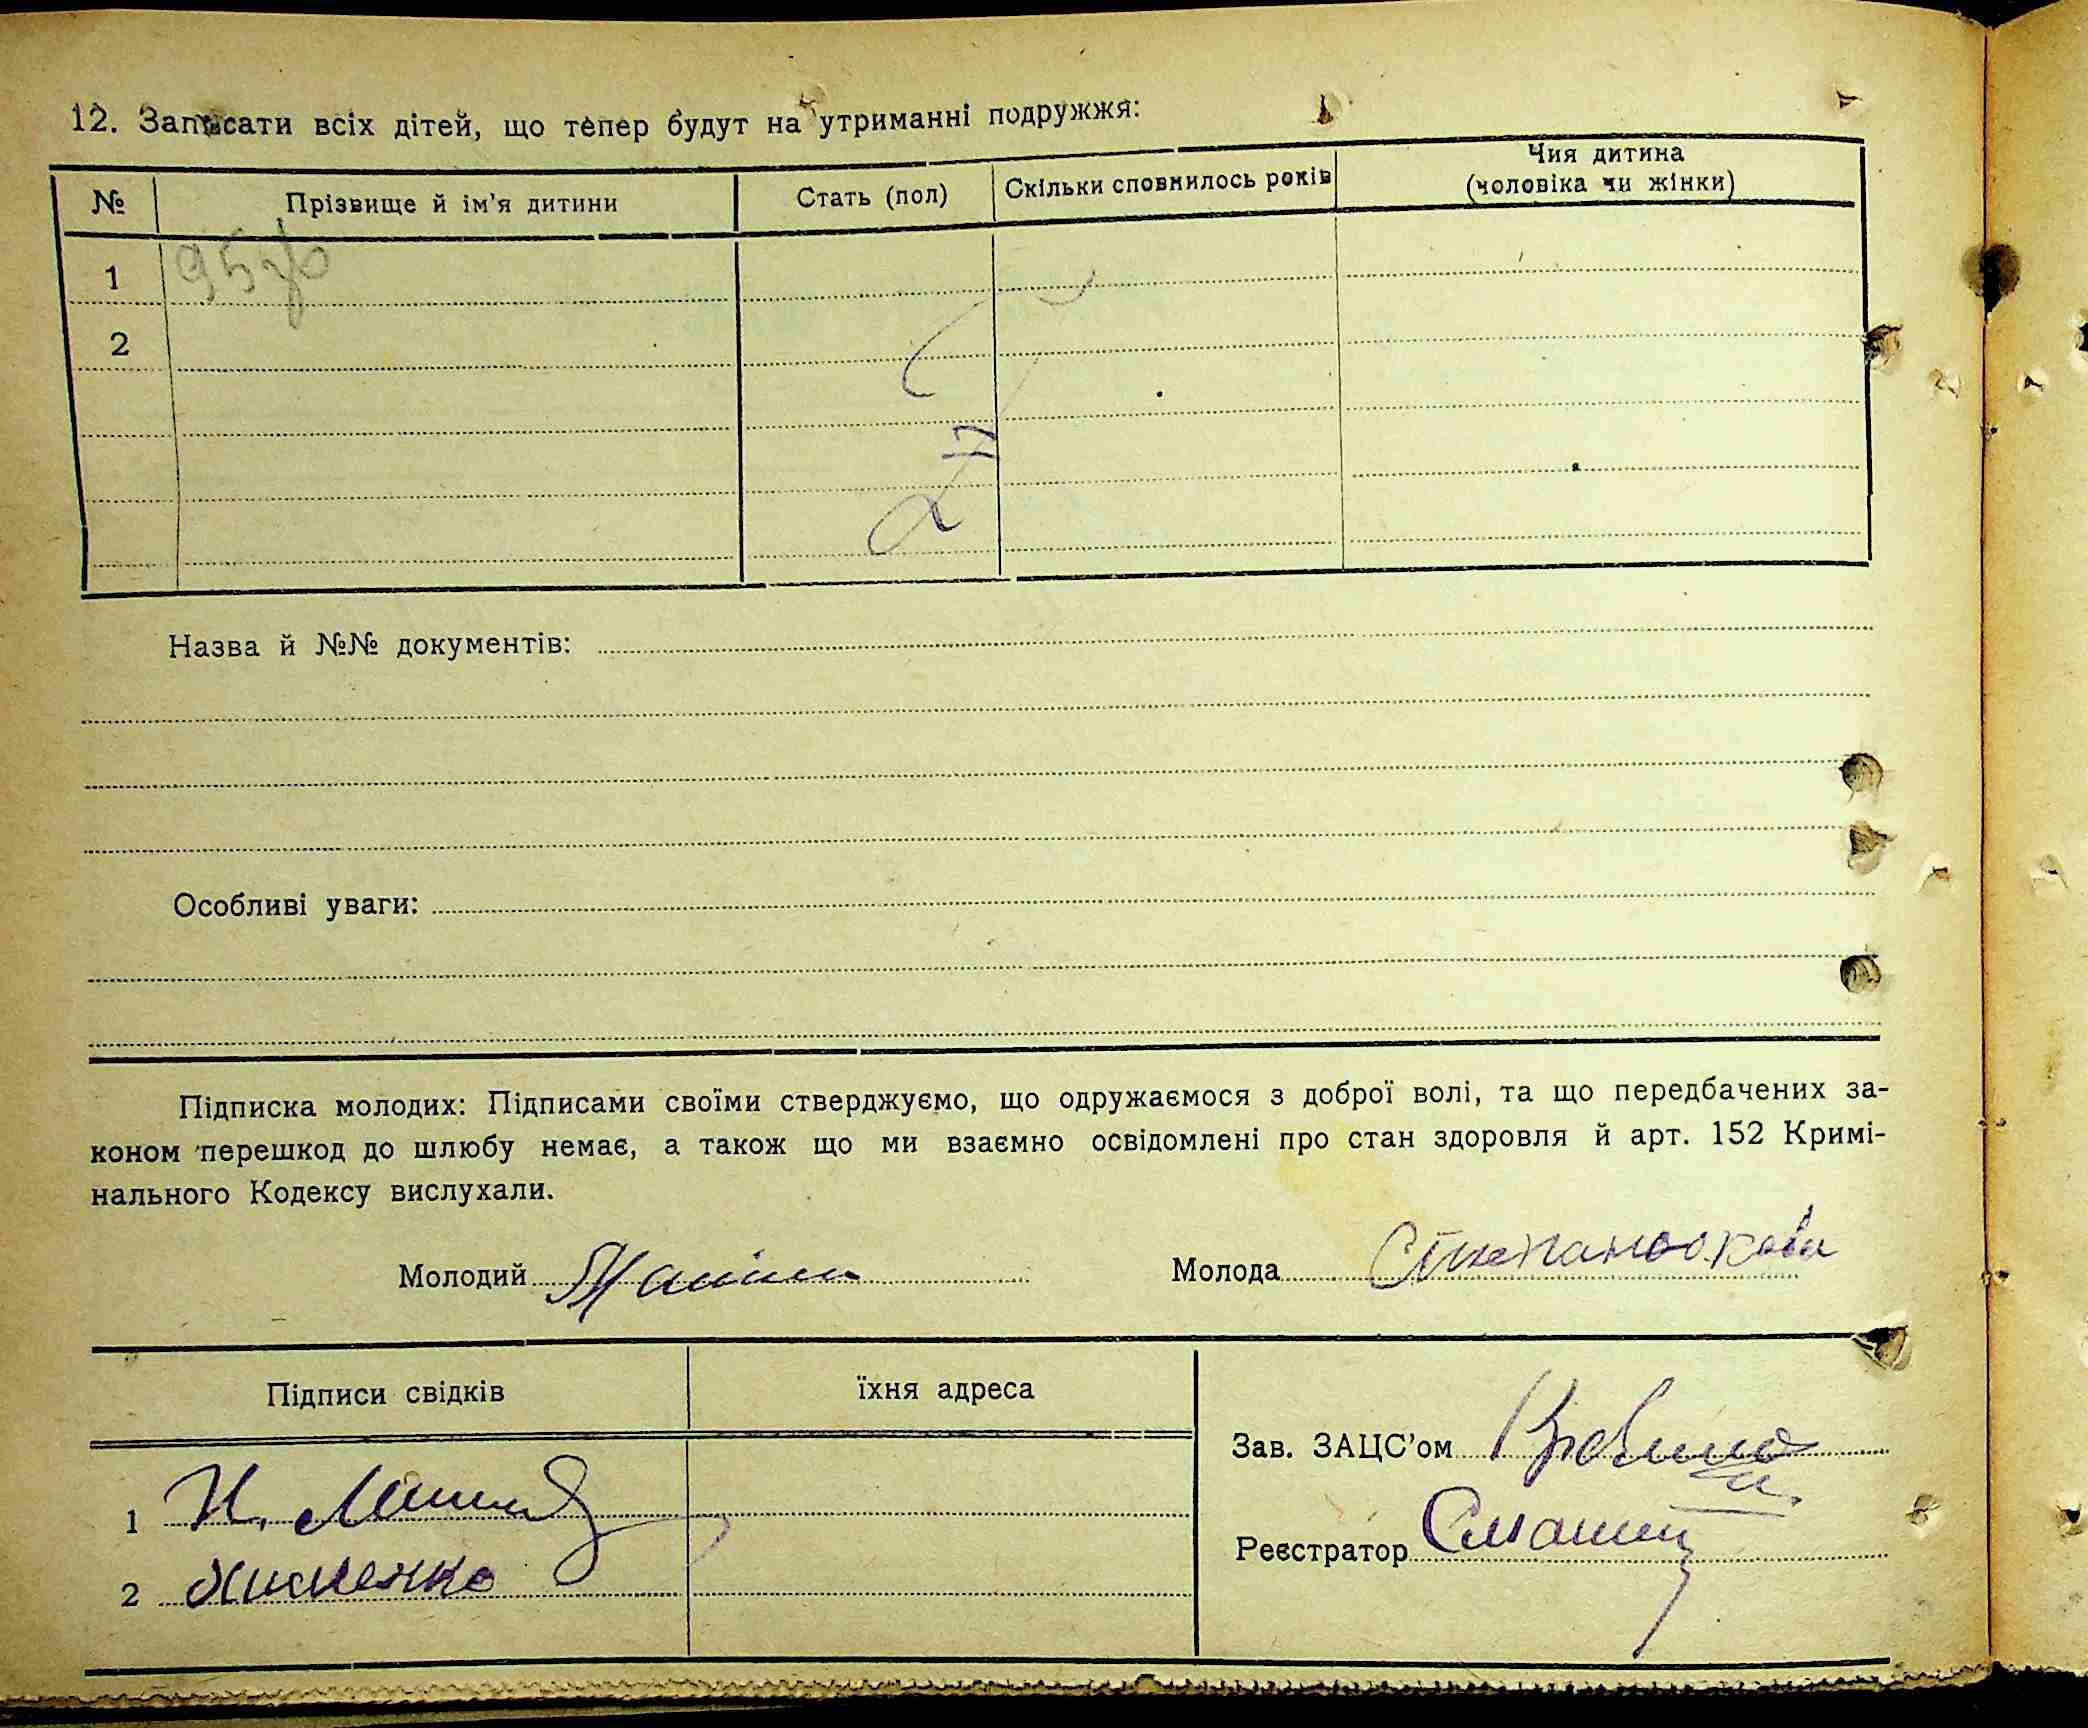 12. Записати всіх дітей, що тепер будут на утриманні подружжя:
№ Прізвище й ім'я дитини Стать (пол) Скільки сповнилось років Чия дитина (чоловіка чи жінки)
1
2
Назва й №№ документів:
Особливі уваги:
Підписка молодих: Підписами своїми стверджуємо, що одружаємося з доброї волі, та що передбачених за-
коном перешкод до шлюбу немає, а також що ми взаємно освідомлені про стан здоровля й арт. 152 Кримі-
нального Кодексу вислухали.
Молодий Молода
Підписи свідків їхня адреса
Зав. ЗАЦС'ом
1
Реєстратор
2